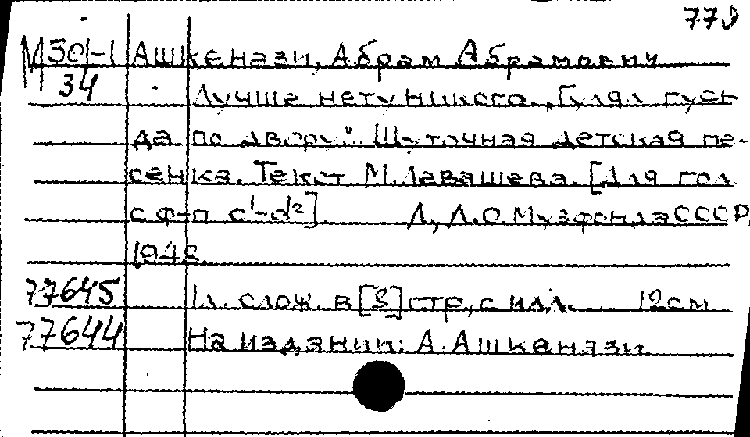 779
М 30/-1 Ашкенази, Абрам Абрамович
34 Лучше нету никого. "Гулял гусь
да по двору". Шуточная детская пе-
сенка. Текст М. Левашева. [Для гол.
с ф-п c¹-d²]. Л., Л.О. Музфонда СССР,
194
77645 1 л. слож. в [8] стр., с илл. 12 см
77644 На издании: А. Ашкенази.